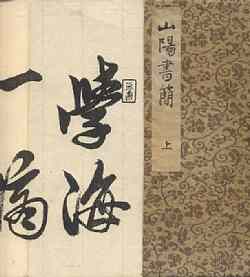 山陽書簡
上
學海
一滴